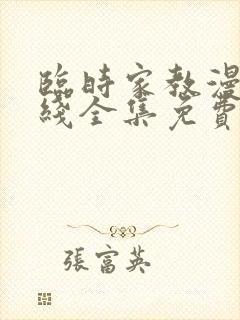 臨時家教漫
綫全集免費
張富英